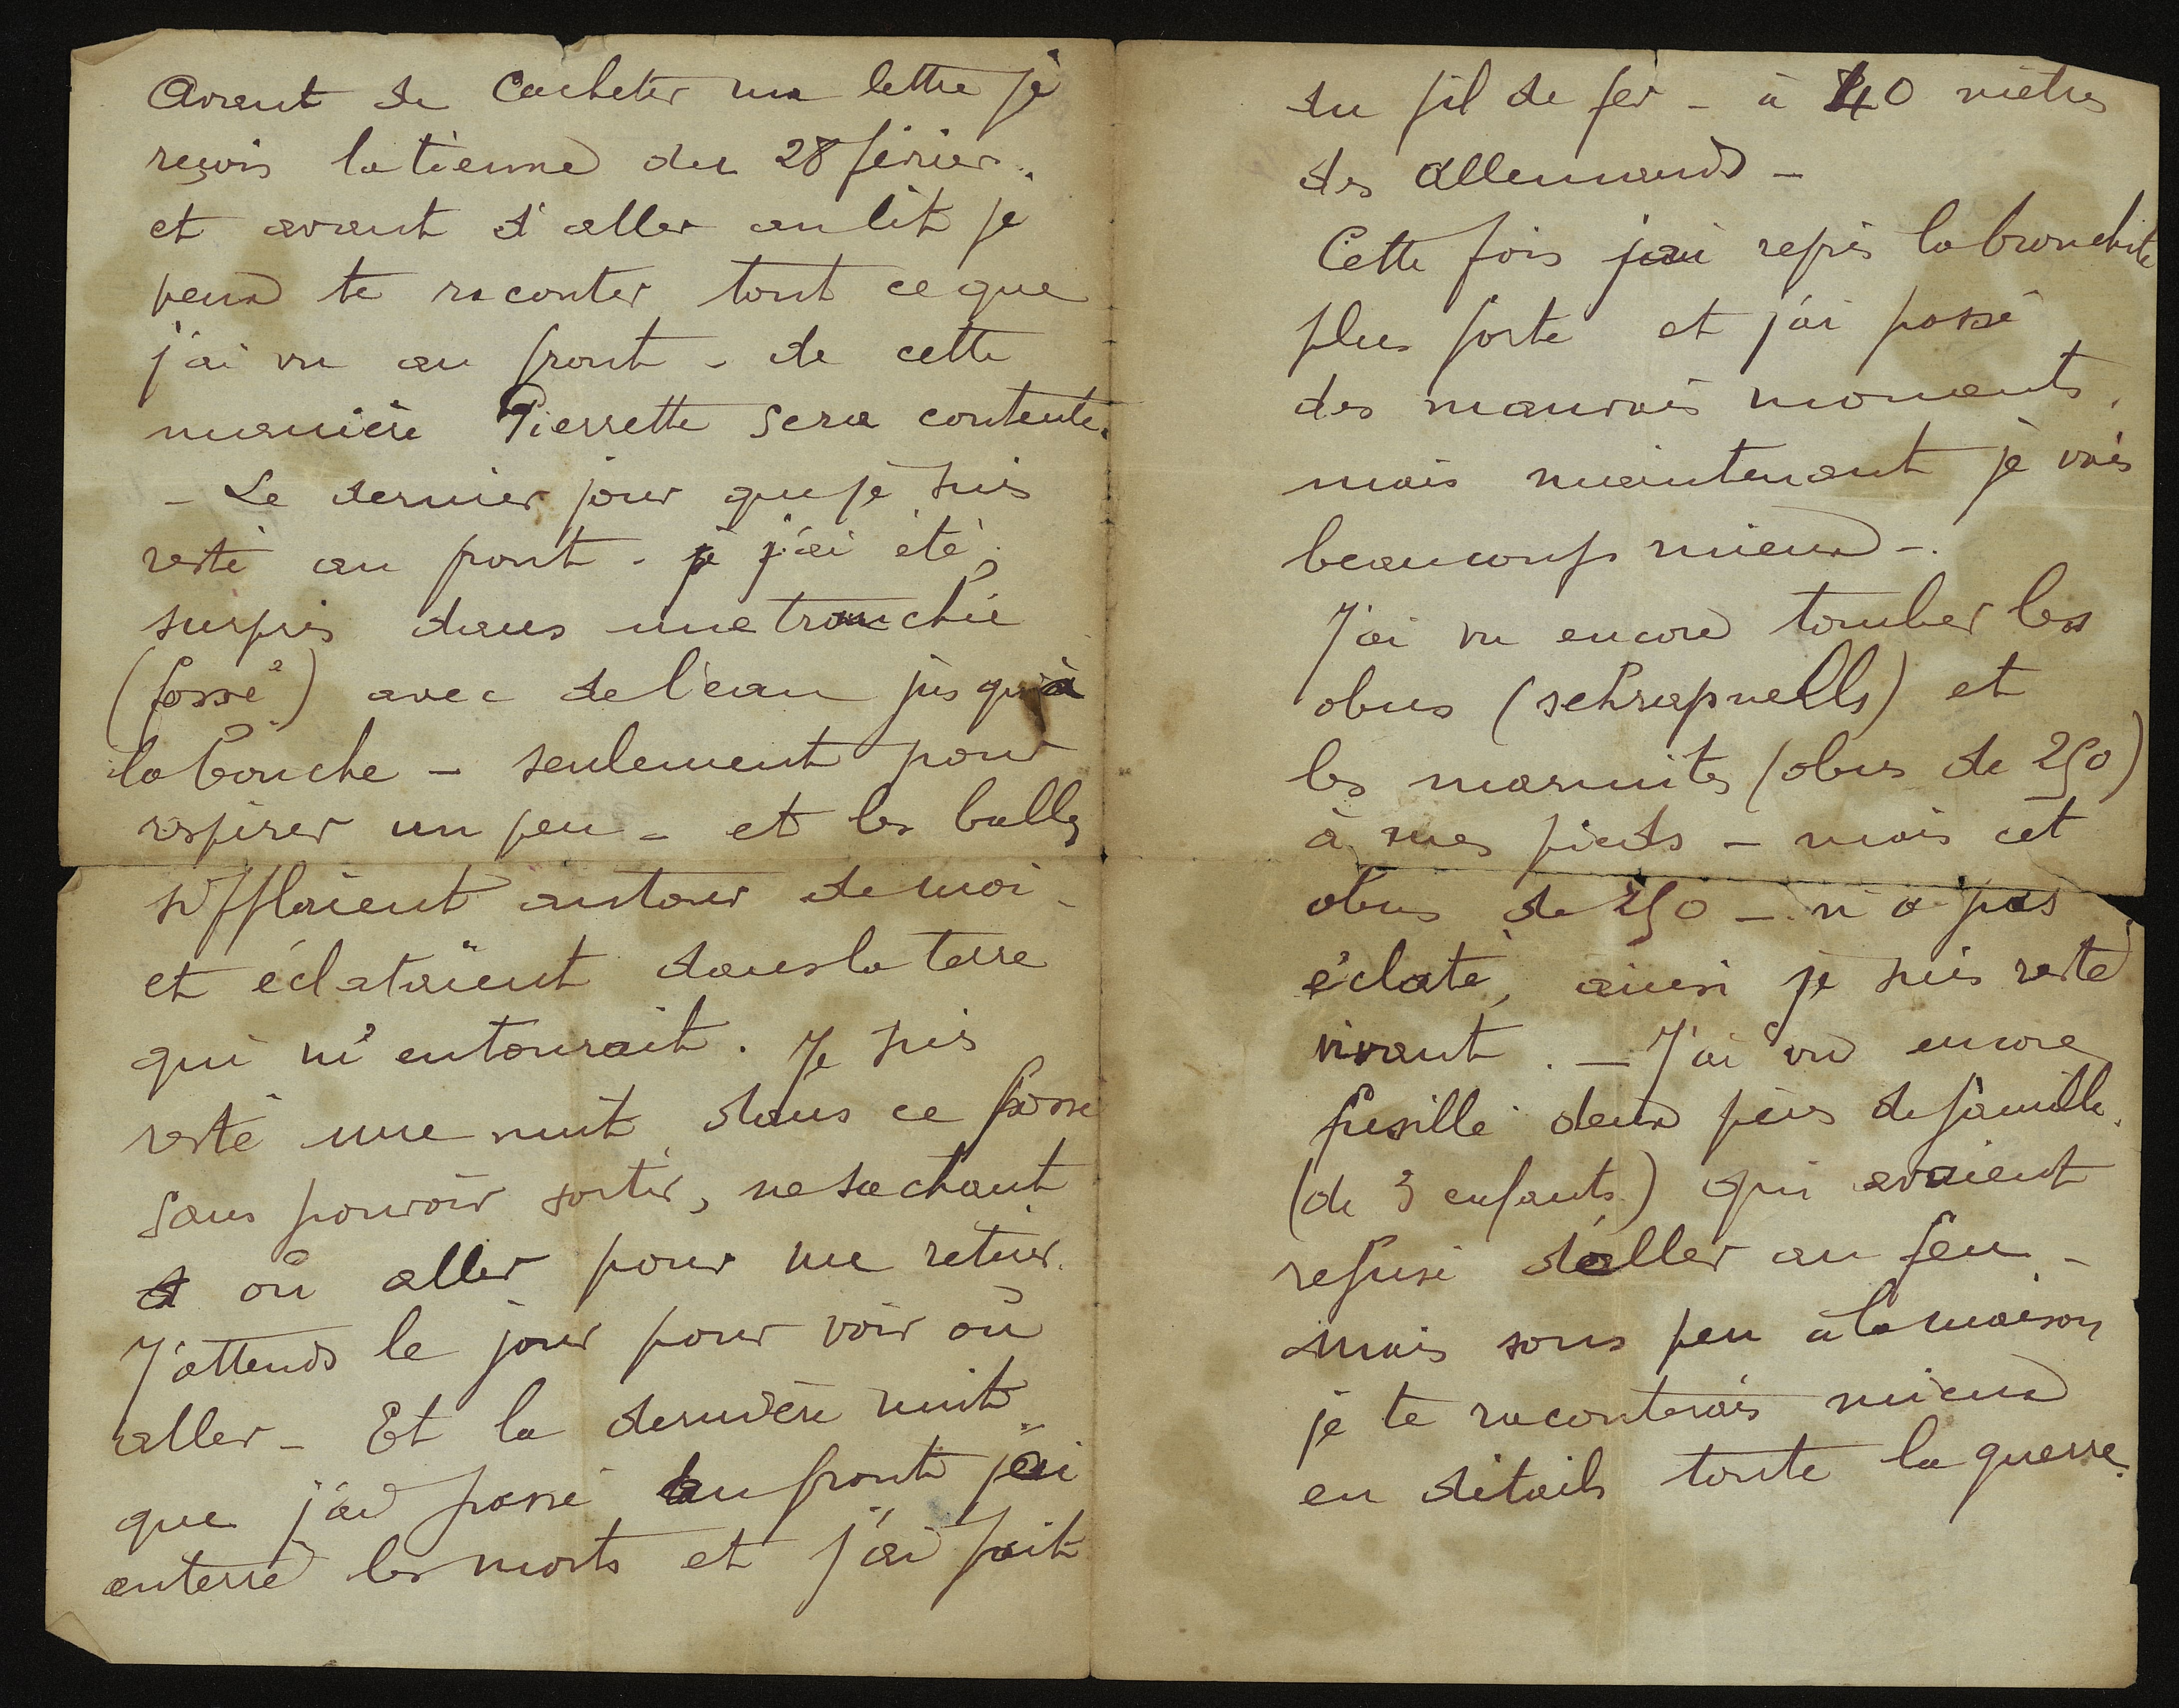 Avant de Cacheter ma lettre je
reçois la tienne du 28 février.
et avant d'aller au lit je
peux te raconter tout ce que
j'ai vu au front - de cette
manière Pierrette sera contente.
- Le dernier jour que je suis
resté au front - j'ai été
surpris dans une tranchée
(fossé) avec de l'eau jusqu'à
la bouche - seulement pour
respirer un peu - et les balles
sifflaient autour de moi -
et éclataient dans la terre
qui m'entourait. Je suis
resté une nuit dans ce fossé
sans pouvoir sortir, ne sachant
où aller pour me retirer.
J'attends le jour pour voir où
aller - Et la dernière nuit
que j'ai passé au front j'ai
enterré les morts et j'ai fait
du fil de fer - à 40 mètres
des Allemands -
Cette fois j'ai repris la bronchite
plus forte et j'ai passé
des mauvais moments,
mais maintenant je vais
beaucoup mieux -.
J'ai vu encore tomber les
obus (schrapnells) et
les marmites (obus de 250)
à mes pieds - mais cet
obus de 250 - n'a pas
éclaté, ainsi je suis resté
vivant. - J'ai vu encore
fusillé deux pères de famille.
(de 3 enfants) qui avaient
refusé d'aller au feu -
mais sous peu à la maison
je te raconterais mieux
en détails toute la guerre.